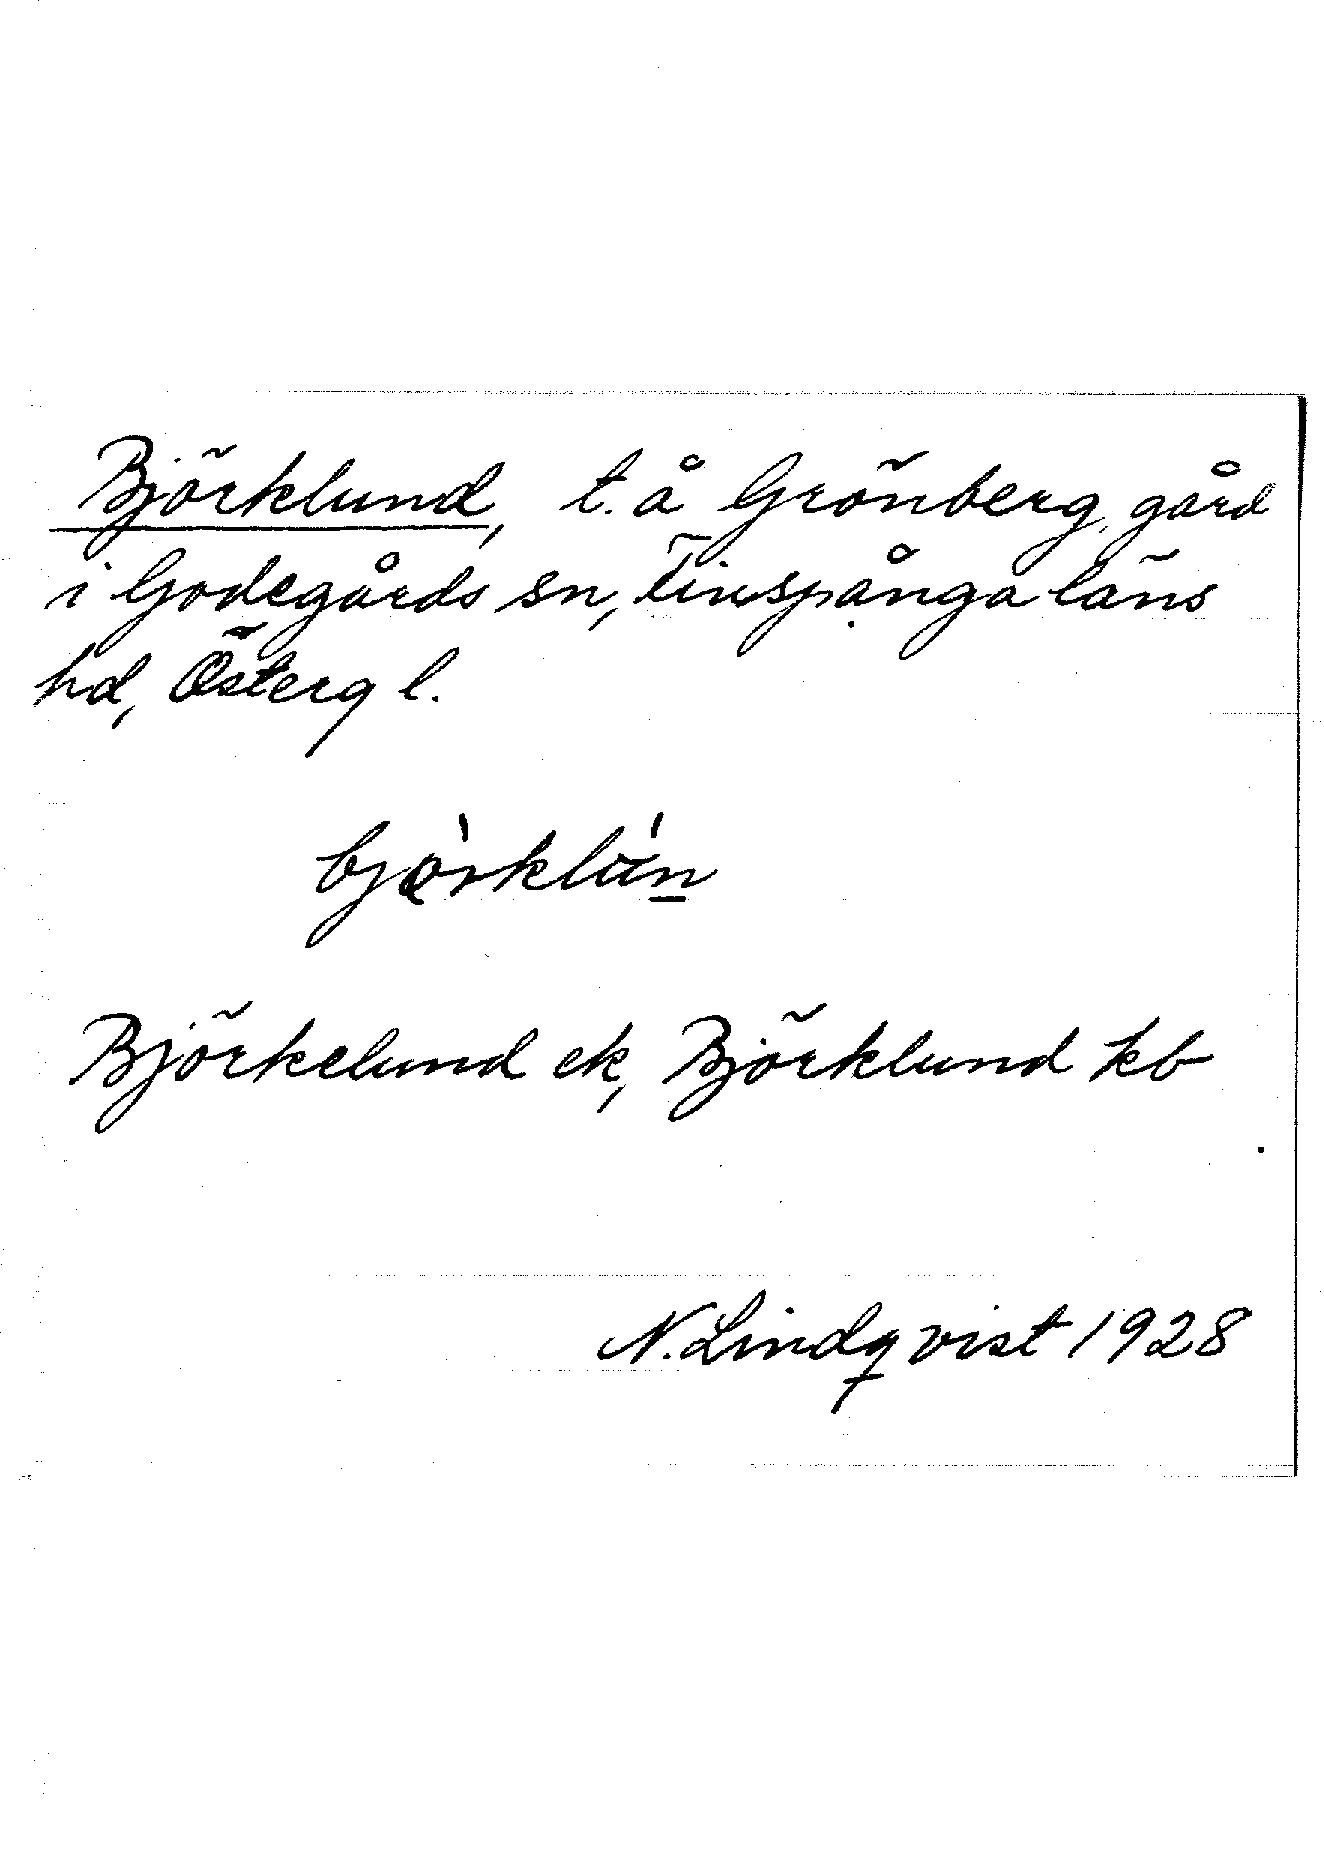 Björklund, t. å Grönberg, gård
i Godegårds sn, Finspånga läns
hd, Österg l.
björklún
Björkelund ek, Björklund kb
N. Lindqvist 1928